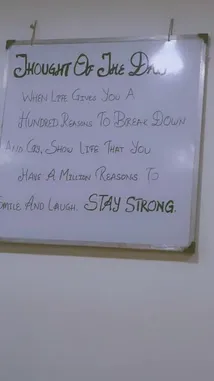 THOUGHT OF THE DAY
WHEN LIFE GIVES YOU A
HUNDRED REASONS TO BREAK DOWN
AND CRY, SHOW LIFE THAT YOU
HAVE A MILLION REASONS TO
SMILE AND LAUGH. STAY STRONG.